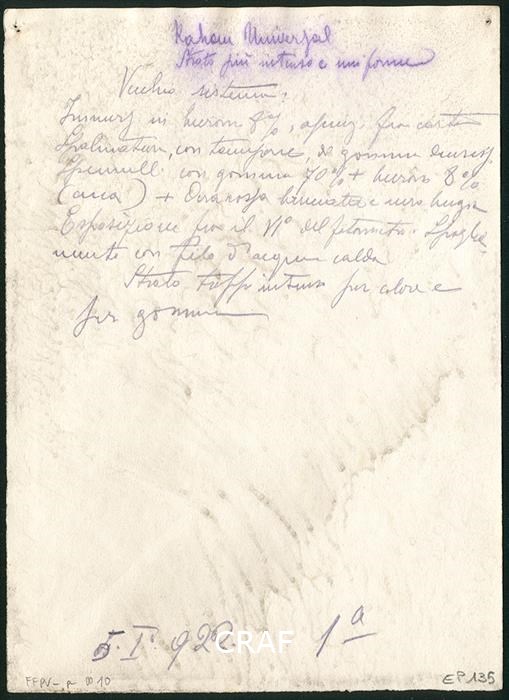 Universal
Strato più intenso e uniforme
Vecchio sistema:
Immers in bicrom 8%, asciug. fra carta
Spalmatura, con tampone, di gomma
con gomma 70% + bicrom 8%
(circa) + terra rossa bruciata e nero
Esposizione fra il VI° del fotometro. Spoglia-
mento con filo d'acqua calda
Strato troppo intenso per colore e
per gomma
5. I. 922 1ª
CRAF
EP 135